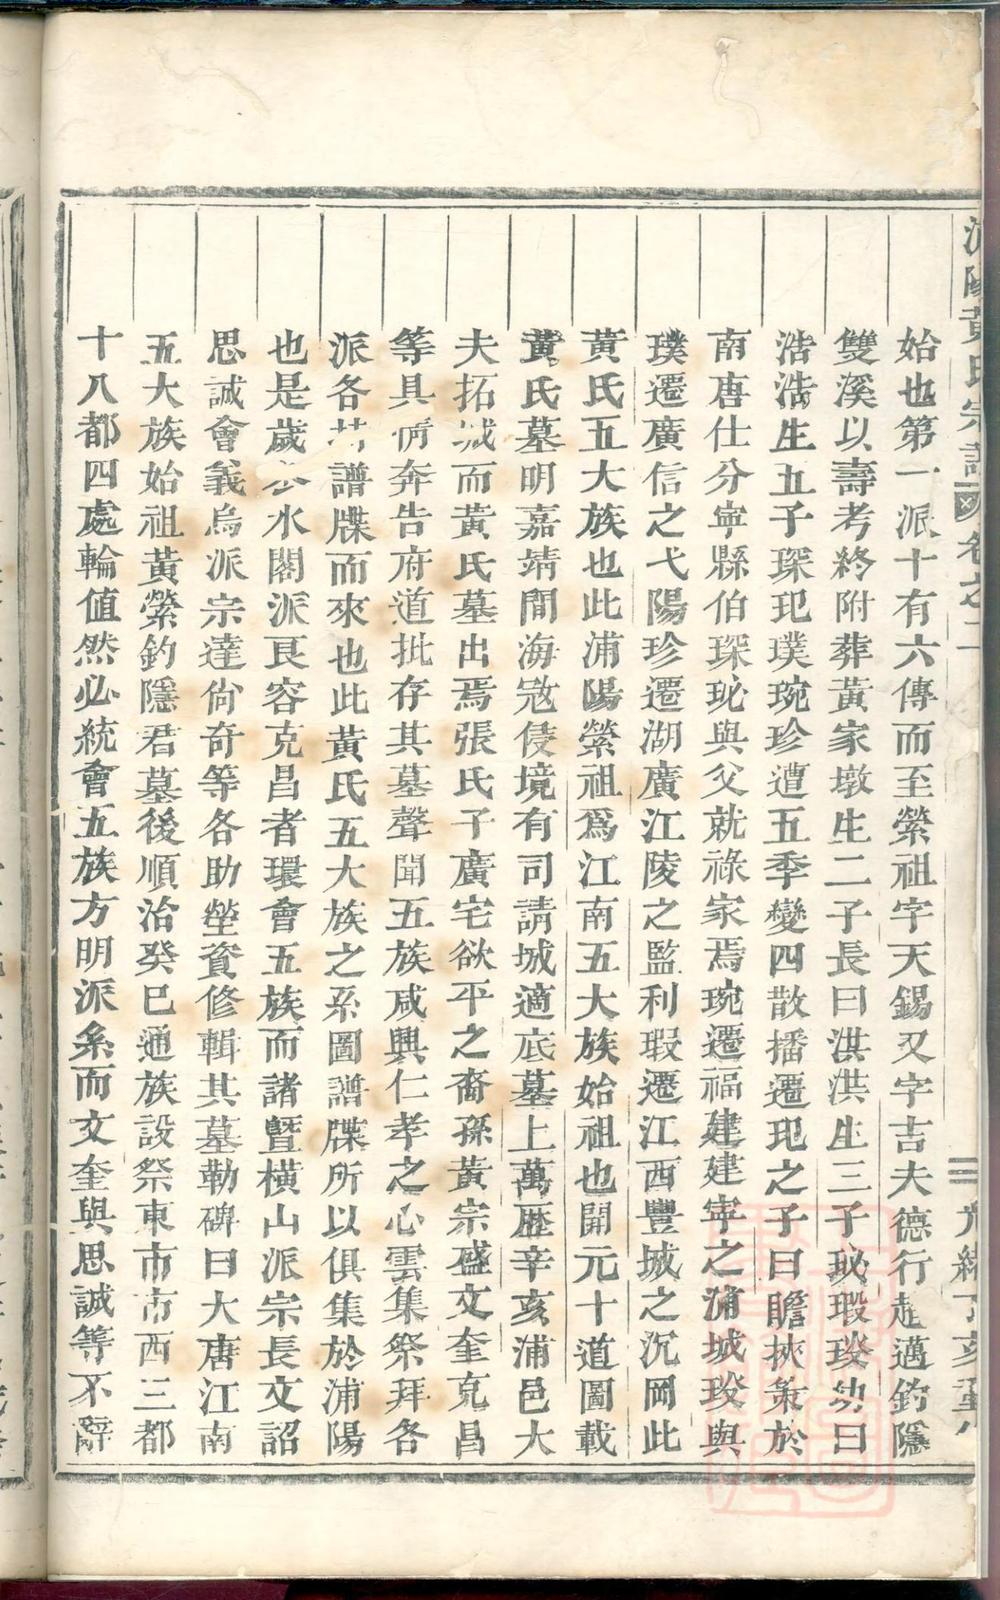 黃氏宗譜 卷之二
始也第一派十有六傳而至縈祖字天錫又字吉夫德行超邁釣隱
雙溪以壽考終附葬黃家墩生二子長曰洪洪生三子珌瑖琰幼曰
浩浩生五子琛玘璞琬珍遭五季變四散播遷玘之子曰瞻挾策於
南唐仕分寧縣伯琛珌與父就祿家焉琬遷福建建寧之浦城琰與
璞遷廣信之弋陽珍遷湖廣江陵之監利瑕遷江西豐城之沉岡此
黃氏五大族也此浦陽縈祖爲江南五大族始祖也開元十道圖載
黃氏墓明嘉靖間海寇侵境有司請城適底墓上萬歷辛亥浦邑大
夫拓城而黃氏墓出焉張氏子廣宅欲平之裔孫黃宗盛文奎克昌
等具情奔告府道批存其墓聲聞五族咸興仁孝之心雲集祭拜各
派各持譜牒而來也此黃氏五大族之系圖譜牒所以俱集於浦陽
也是歲水閣派良容克昌者環會五族而諸暨橫山派宗長文詔
思誠會義烏派宗達尙奇等各助塋資修輯其墓勒碑曰大唐江南
五大族始祖黃縈釣隱君墓後順治癸巳通族設祭東市市西三都
十八都四處輪值然必統會五族方明派系而文奎與思誠等不辭